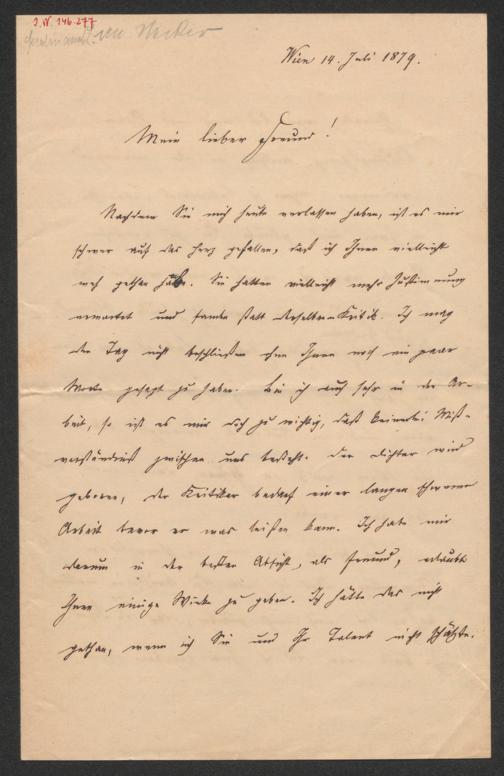 I.N. 146.277
Wien 14. Juli 1879.
Mein lieber Freund!
Nachdem Sie mich heute verlassen haben, ist es mir
schwer auf das Herz gefallen, daß ich Ihnen vielleicht
weh gethan habe. Sie hatten vielleicht mehr Zustimmung
erwartet und fanden statt derselben Kritik. Ich mag
den Tag nicht beschließen ohne Ihnen noch ein paar
Worte gesagt zu haben. Bin ich auch sehr in der Ar-
beit, so ist es mir doch zu wichtig, daß keinerlei Miß-
verständniß zwischen uns besteht. Der Dichter wird
geboren, der Kritiker bedarf einer langen schweren
Arbeit bevor er was leisten kann. Ich habe mir
darum in der besten Absicht, als Freund, erlaubt
Ihnen einige Winke zu geben. Ich hätte das nicht
gethan, wenn ich Sie und Ihr Talent nicht schätzte.